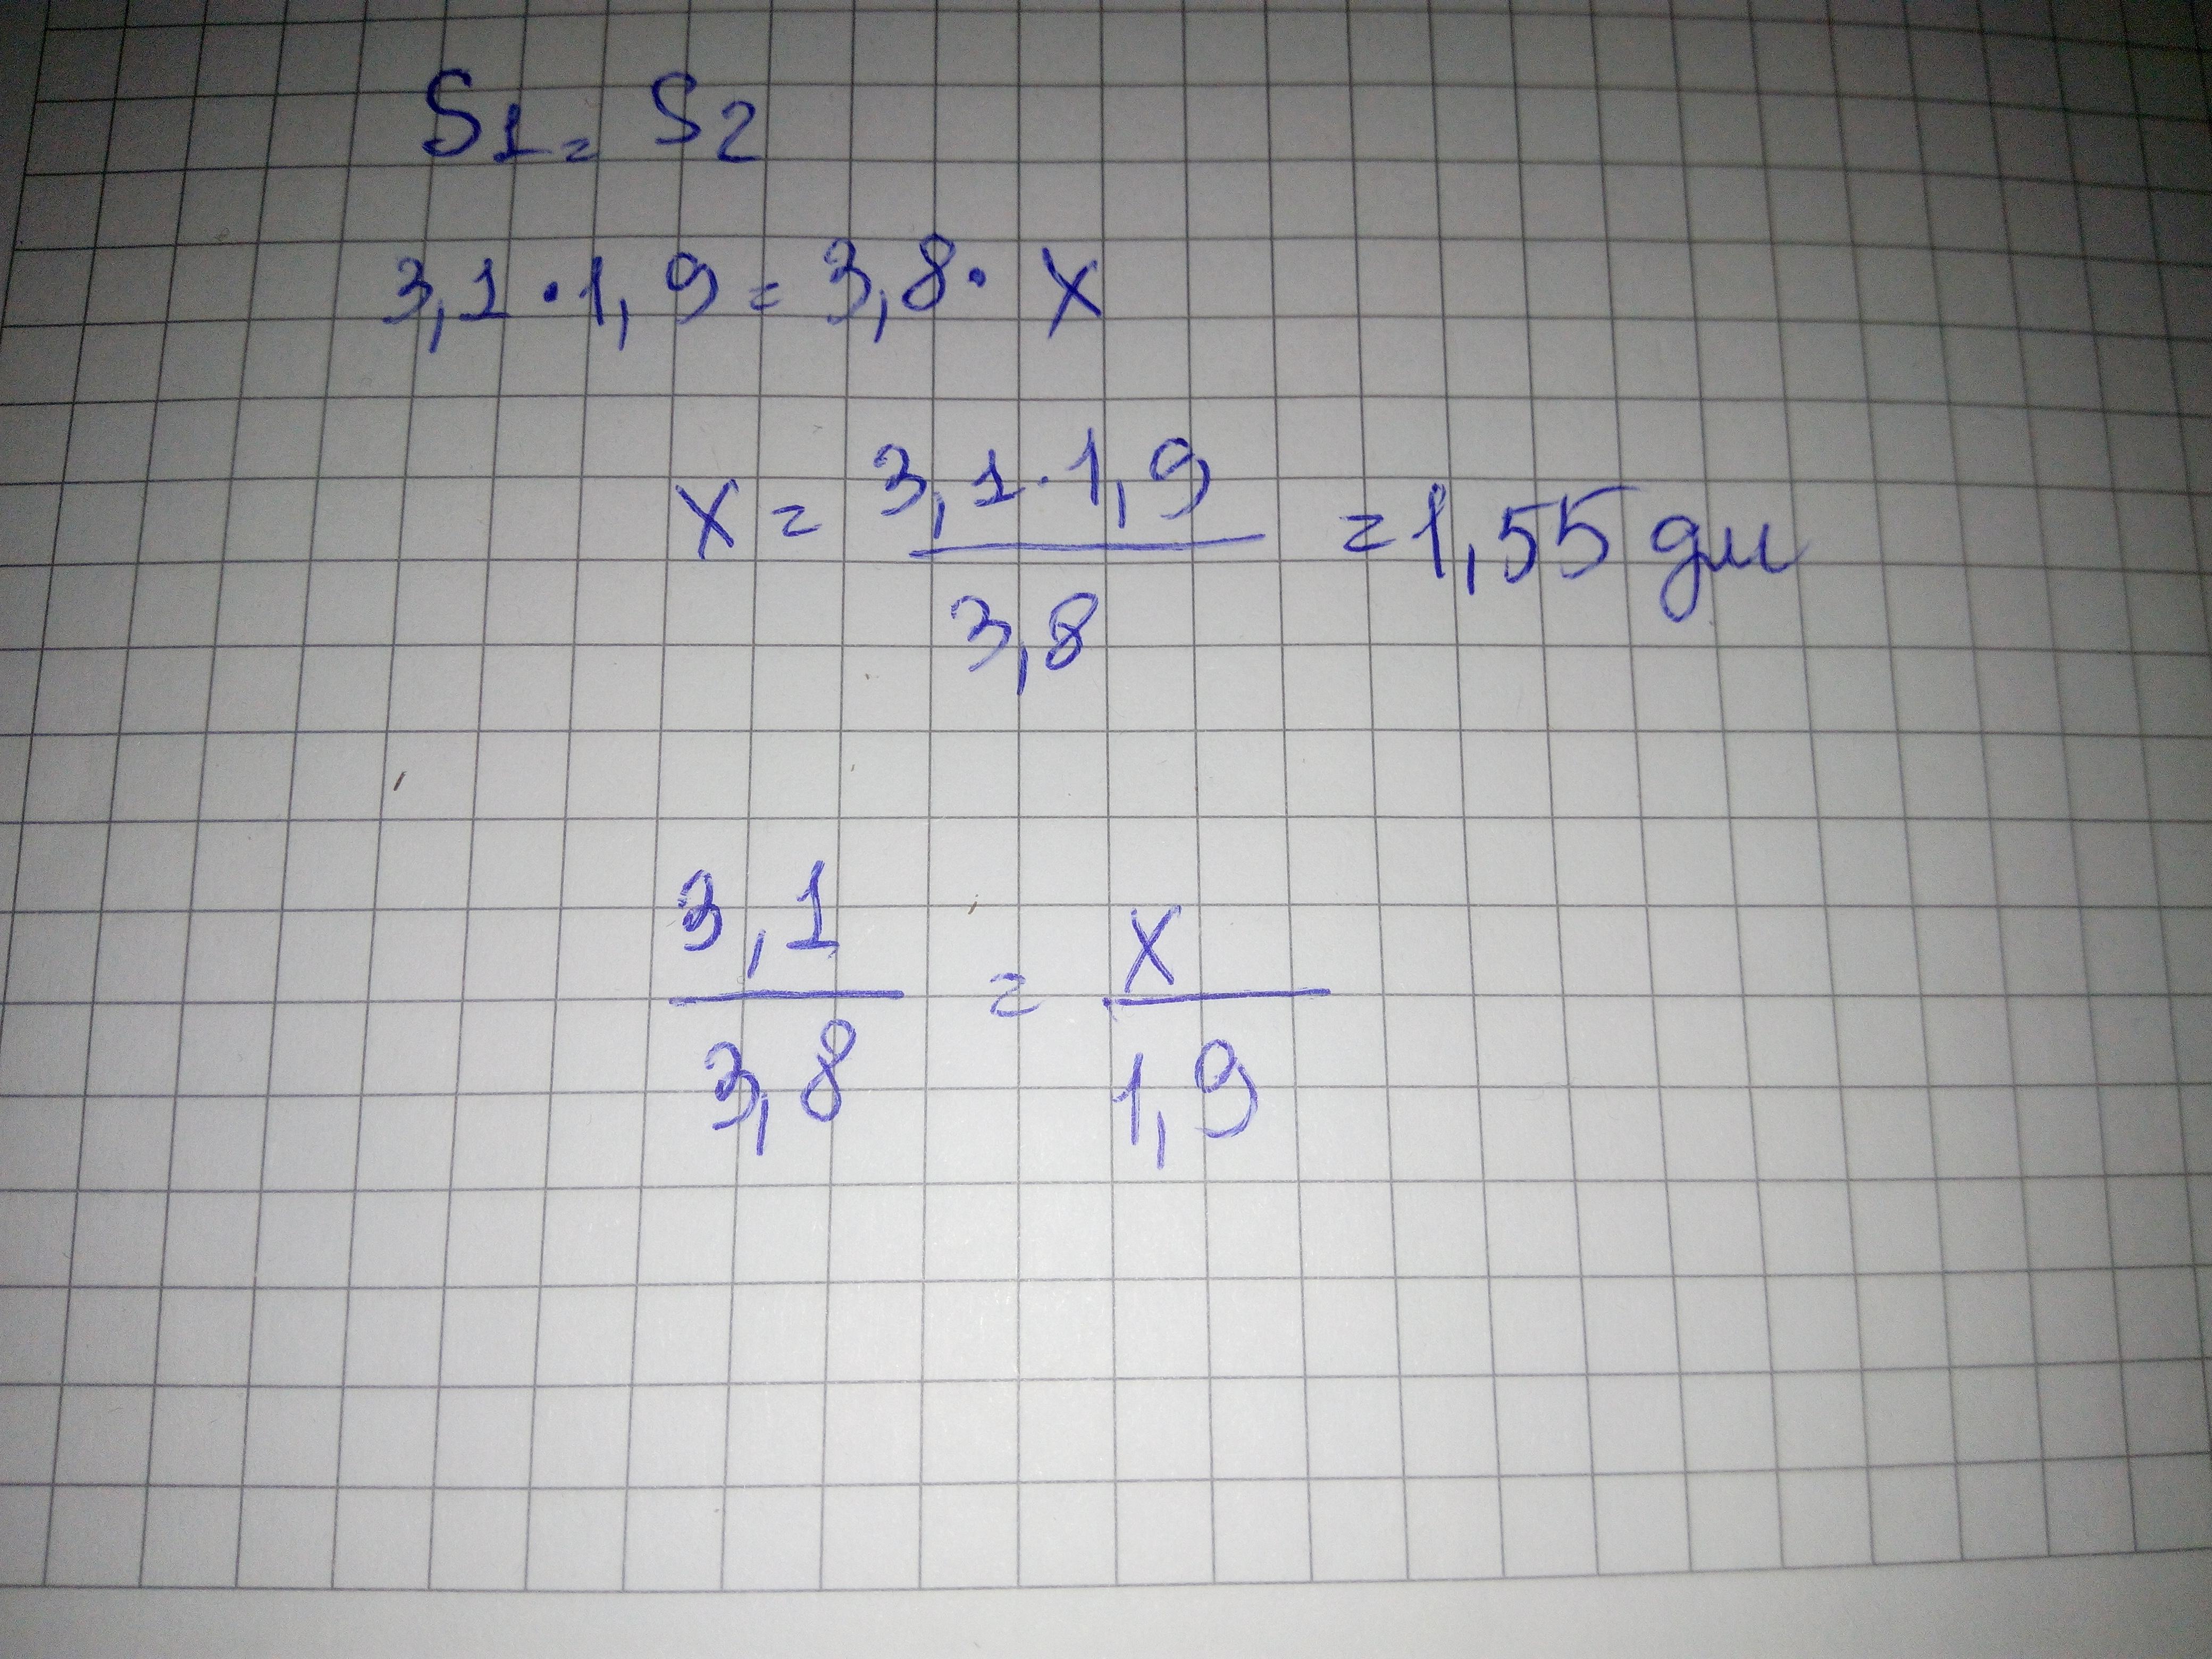 S1 = S2
3,1 · 1,9 = 3,8 · x
x = 3,1 · 1,9 / 3,8 = 1,55 дм
3,1 / 3,8 = x / 1,9